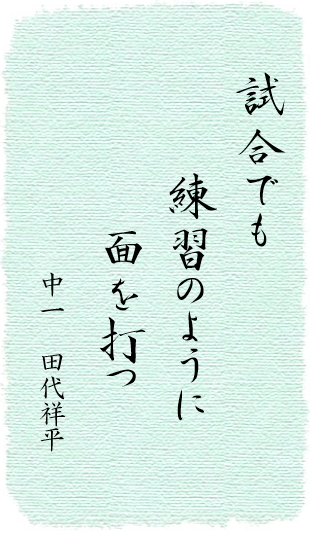 試合でも
練習のように
面を打つ
中一 田代祥平